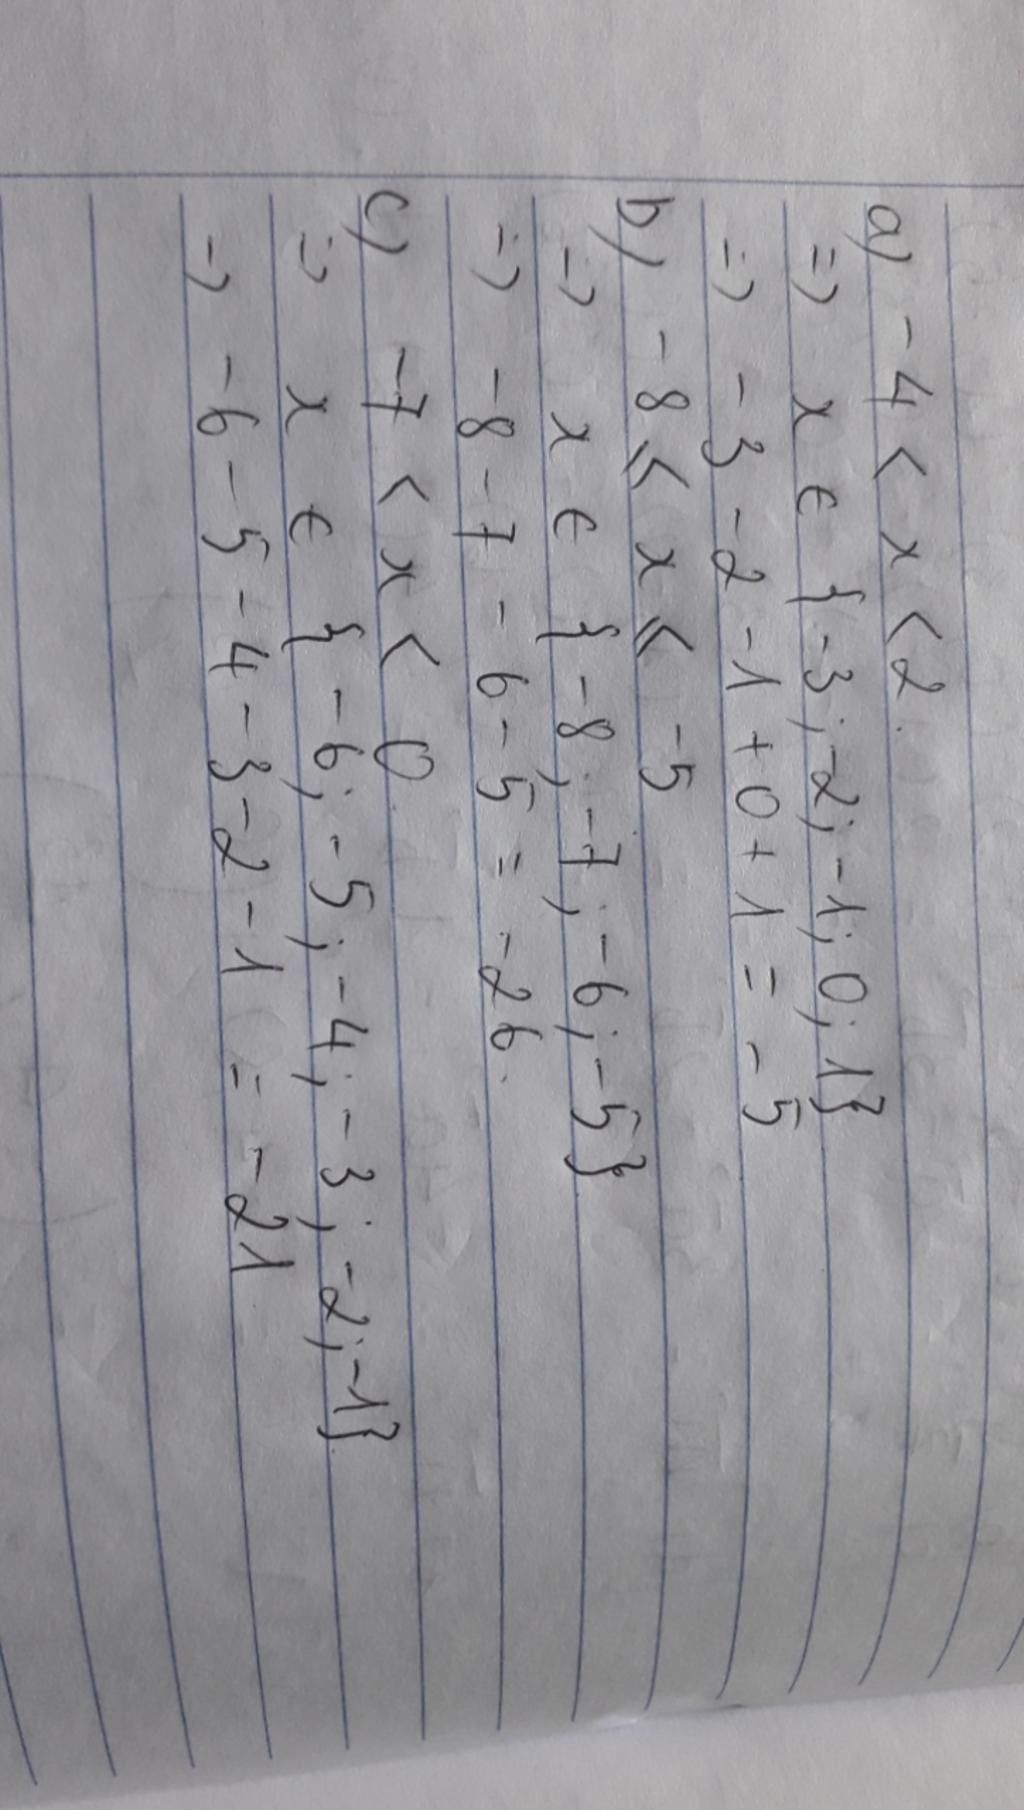 a) -4 < x < 2.
=> x ∈ {-3; -2; -1; 0; 1}
=> -3 - 2 - 1 + 0 + 1 = -5
b) -8 ⩽ x ⩽ -5
=> x ∈ {-8; -7; -6; -5}
=> -8 - 7 - 6 - 5 = -26.
c) -7 < x < 0.
=> x ∈ {-6; -5; -4; -3; -2; -1}
=> -6 - 5 - 4 - 3 - 2 - 1 = -21